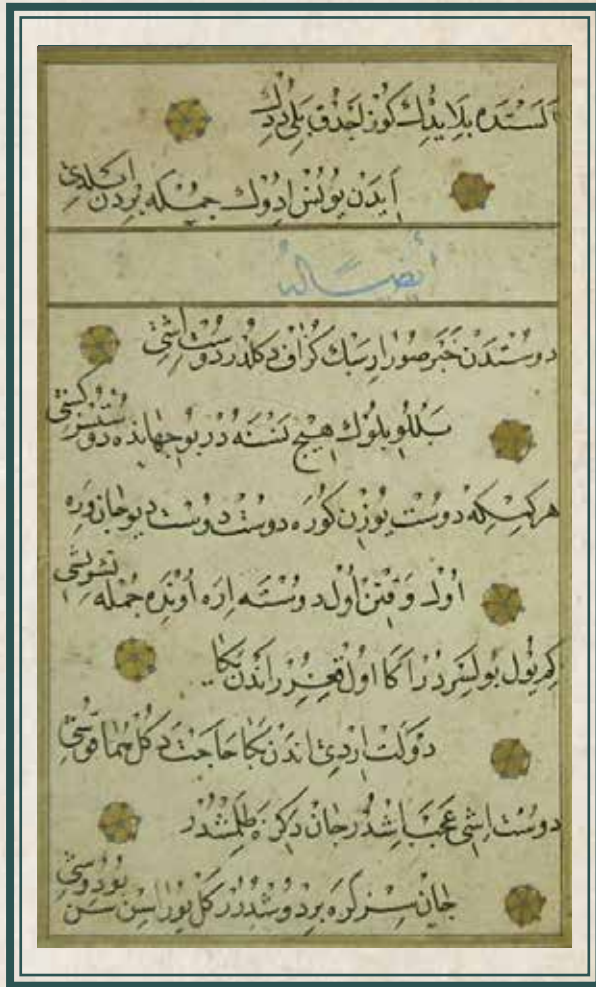 اَلَسْتَدَه بِلَايِدِڭ كَوْزلَجَذُقْ بَلِي دِدِڭ
اَيْدَنْ يُونُسْ اِدُوڭ جُمْلَه بِرْدَنْ اِيكِلدِي
أيضًا لهُ
دوسْتْدَنْ خَبَرْ صُورَارِسَڭ كَزَافْ دَكُلدُرْ دُوسْتْ اِشِي
بَلْلُو بِلُوڭ هِيچ نَسْنَه دُرْ بُو جِهَانْدَه دُوسْتْسُزْ كِشِي
هَركِمْسَكَه دُوسْتْ يُوزِنْ كُورَه دُوسْتْ دُوسْتْ دِيُو جَانْ وِرَه
اُولْ وَقْتِنْ اُولْ دُوسْتَه اِرَه اُونِدَه جُمْلَه تَشْوِيشِي
كِمْ يُولْ بُولِسَرْدُرْ اَڭَا اُولْ قَچِرُرْ اَنْدَنْ يَڭَا
دَوْلَتْ اِرْدِي اَنْدَنْ بَڭَا حَاجَتْ دَكُلْ هُمَا قُوشِي
دُوسْتْ اِشِي عَجَبْ اِشْدُرْ جَانْ دَڭِزَه طَلْمِشْدُرْ
جَانْ سِزْ كَرَه بِرْ دُوشْدُرُرْ كَلْ يُورَاسِنْ سَنْ بُو دُوشِي